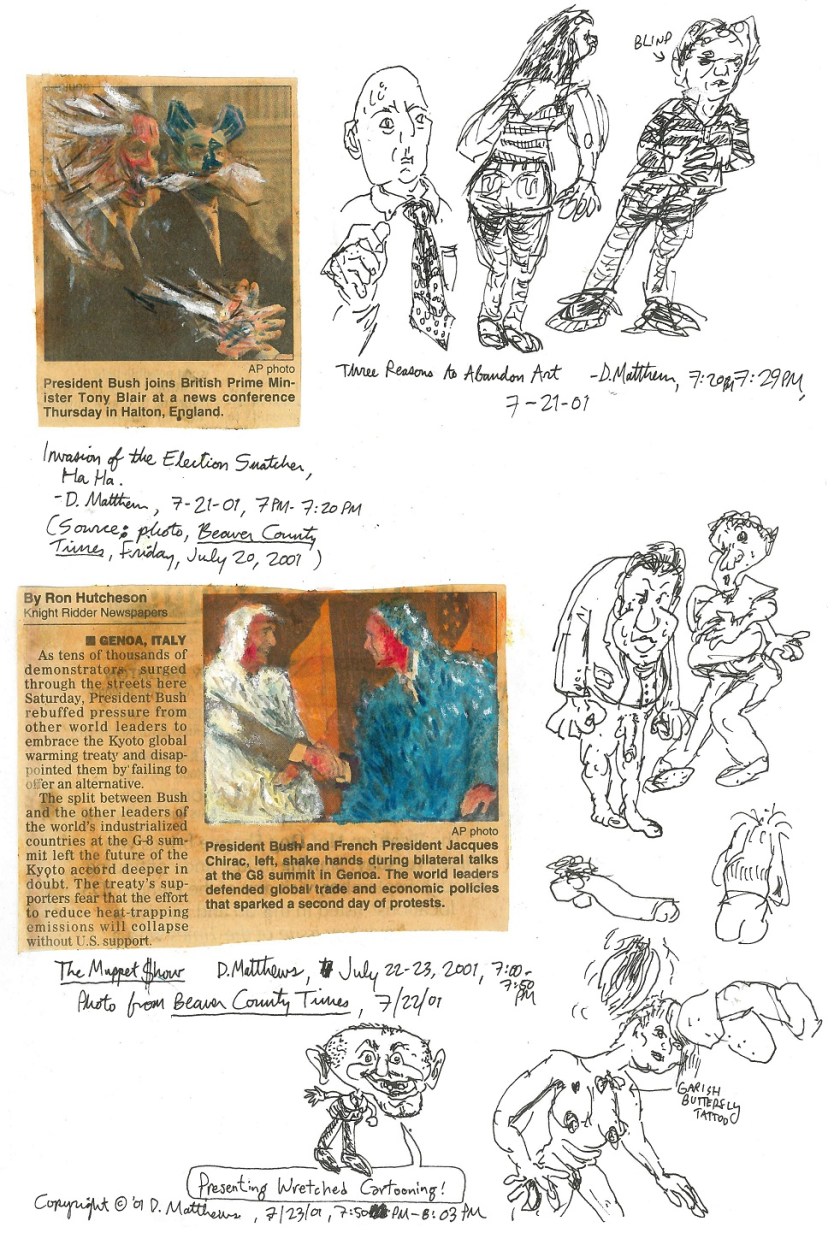 BLIND
AP photo
President Bush joins British Prime Min-
ister Tony Blair at a news conference
Thursday in Halton, England.
Three Reasons to Abandon Art - D. Matthews, 7:20PM 7:29 PM,
7-21-01
Invasion of the Election Snatcher,
Ha Ha.
- D. Matthews, 7-21-01, 7 PM - 7:20 PM
(Source: photo, Beaver County
Times, Friday, July 20, 2001)
By Ron Hutcheson
Knight Ridder Newspapers
■ GENOA, ITALY
As tens of thousands of
demonstrators surged
through the streets here
Saturday, President Bush
rebuffed pressure from
other world leaders to
embrace the Kyoto global
warming treaty and disap-
pointed them by failing to
offer an alternative.
The split between Bush
and the other leaders of
the world's industrialized
countries at the G-8 sum-
mit left the future of the
Kyoto accord deeper in
doubt. The treaty's sup-
porters fear that the effort
to reduce heat-trapping
emissions will collapse
without U.S. support.
AP photo
President Bush and French President Jacques
Chirac, left, shake hands during bilateral talks
at the G8 summit in Genoa. The world leaders
defended global trade and economic policies
that sparked a second day of protests.
The Muppet $how D. Matthews, July 22-23, 2001, 7:00-
7:50
PM
Photo from Beaver County Times, 7/22/01
GARISH
BUTTERFLY
TATTOO
Presenting Wretched Cartooning!
Copyright © '01 D. Matthews, 7/23/01, 7:50 PM - 8:03 PM